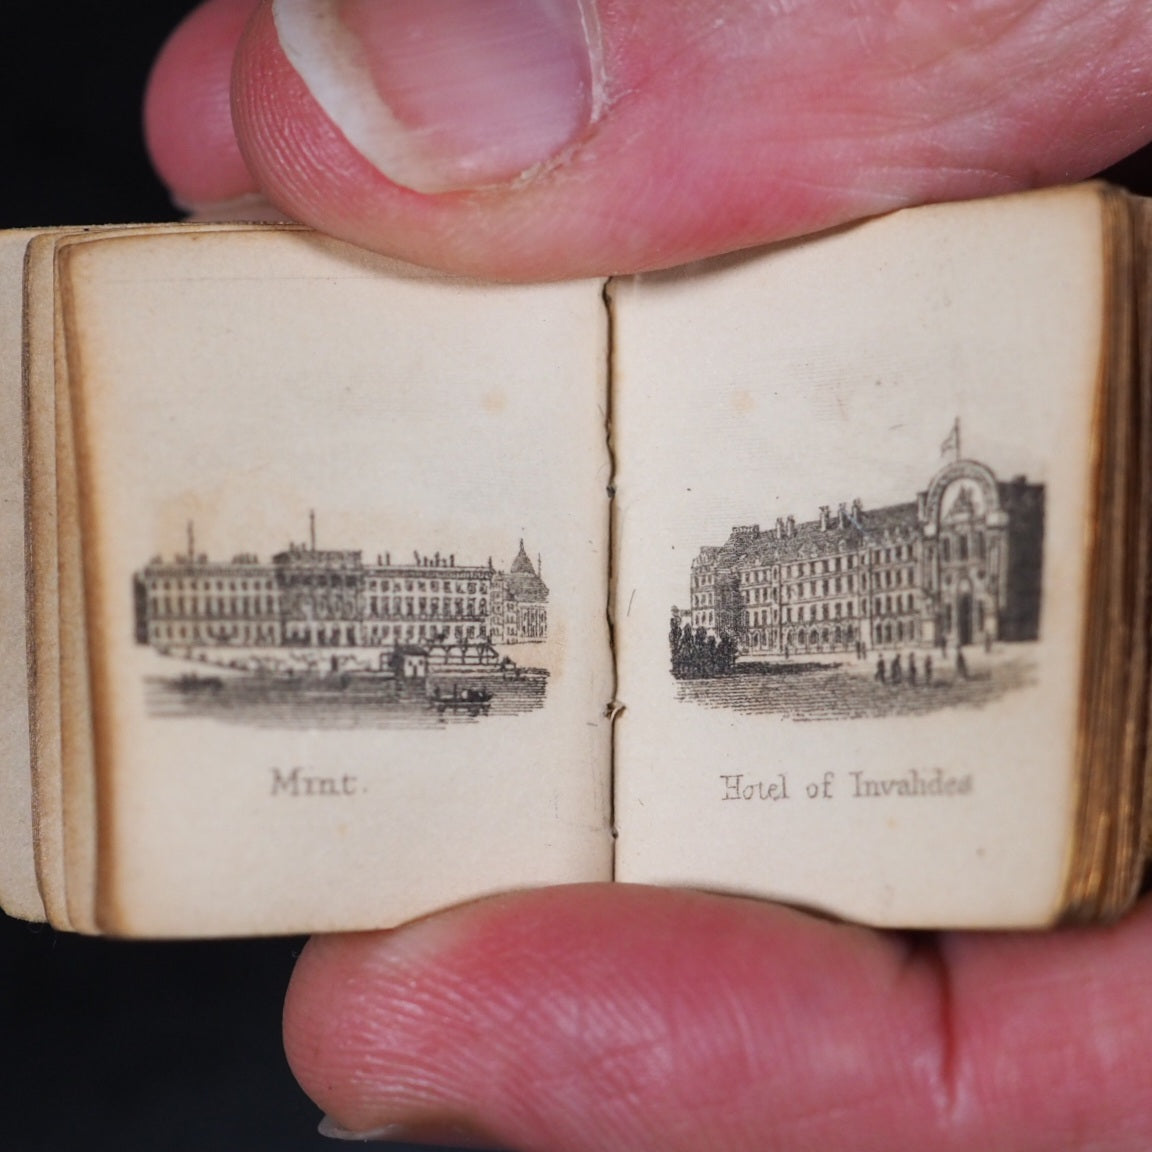 Mint.
Hotel of Invalides